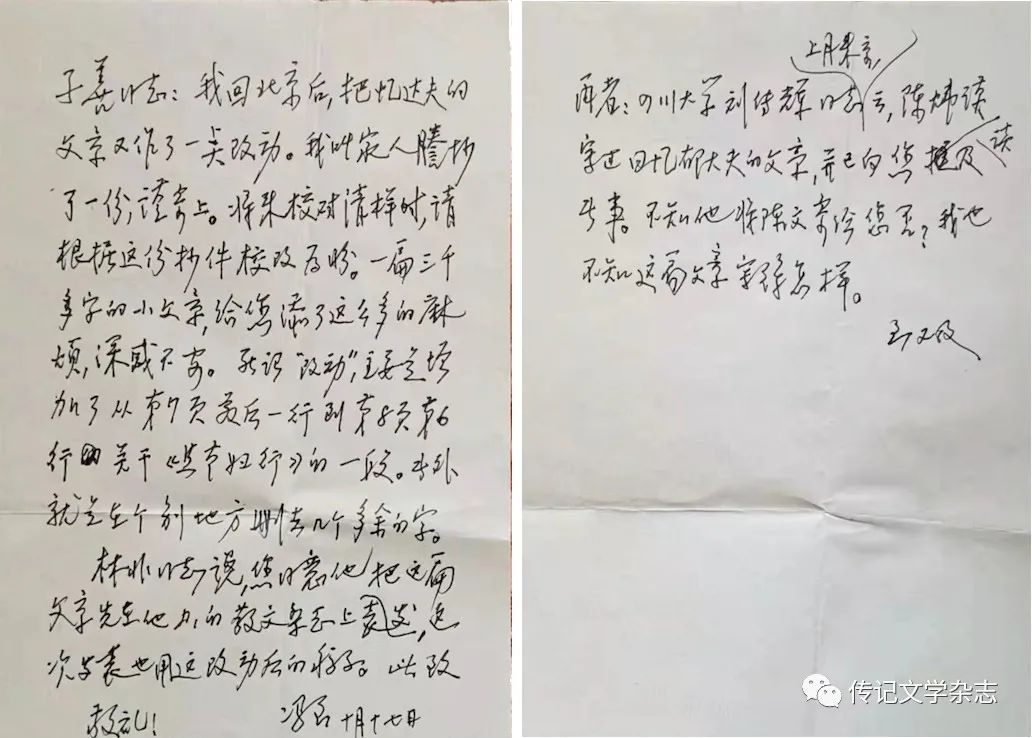 子善同志：我回北京后，把忆达夫的
文章又作了一点改动。我叫家人謄抄
了一份，谨寄上。将来校对清样时，请
根据这份抄件校改为盼。一篇三千
多字的小文章，给您添了这么多的麻
烦，深感不安。所谓“改动”，主要是增
加了从第7页最后一行到第8页第6
行关于《黄节妇行》的一段。此外
就是在个别地方删去几个多余的字。
林非同志说，您同意他把这篇
文章先在他办的散文杂志上发表，这
次发表也用这改动后的稿子。此致
敬礼！ 冯至 十月十七日
上月来京，
再者：四川大学刘传辉同志云，陈炜谟
写过回忆郁达夫的文章，并已向您提及
此事。不知他将陈文寄给您否？我也
不知这篇文章写得怎样。
至又及
传记文学杂志